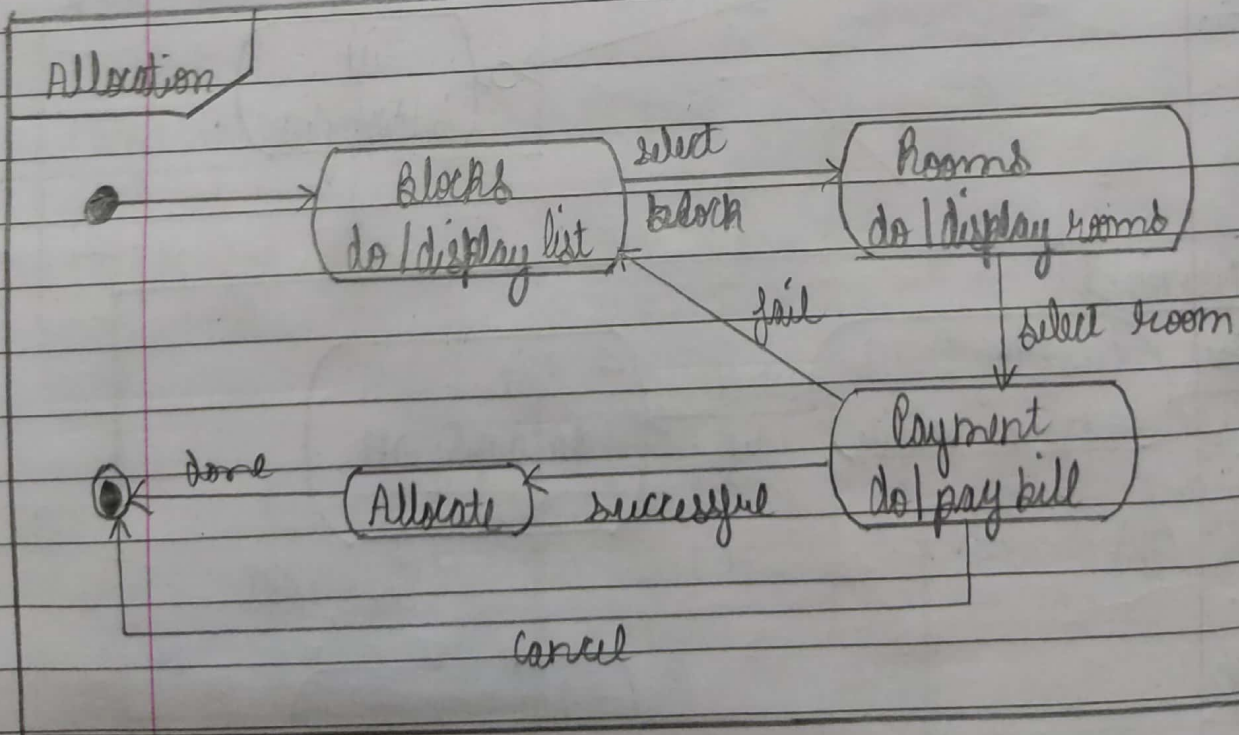 Allocation
Blocks
do / display list
select
block
Rooms
do / display rooms
fail
select room
Payment
do / pay bill
done
Allocate
successful
cancel